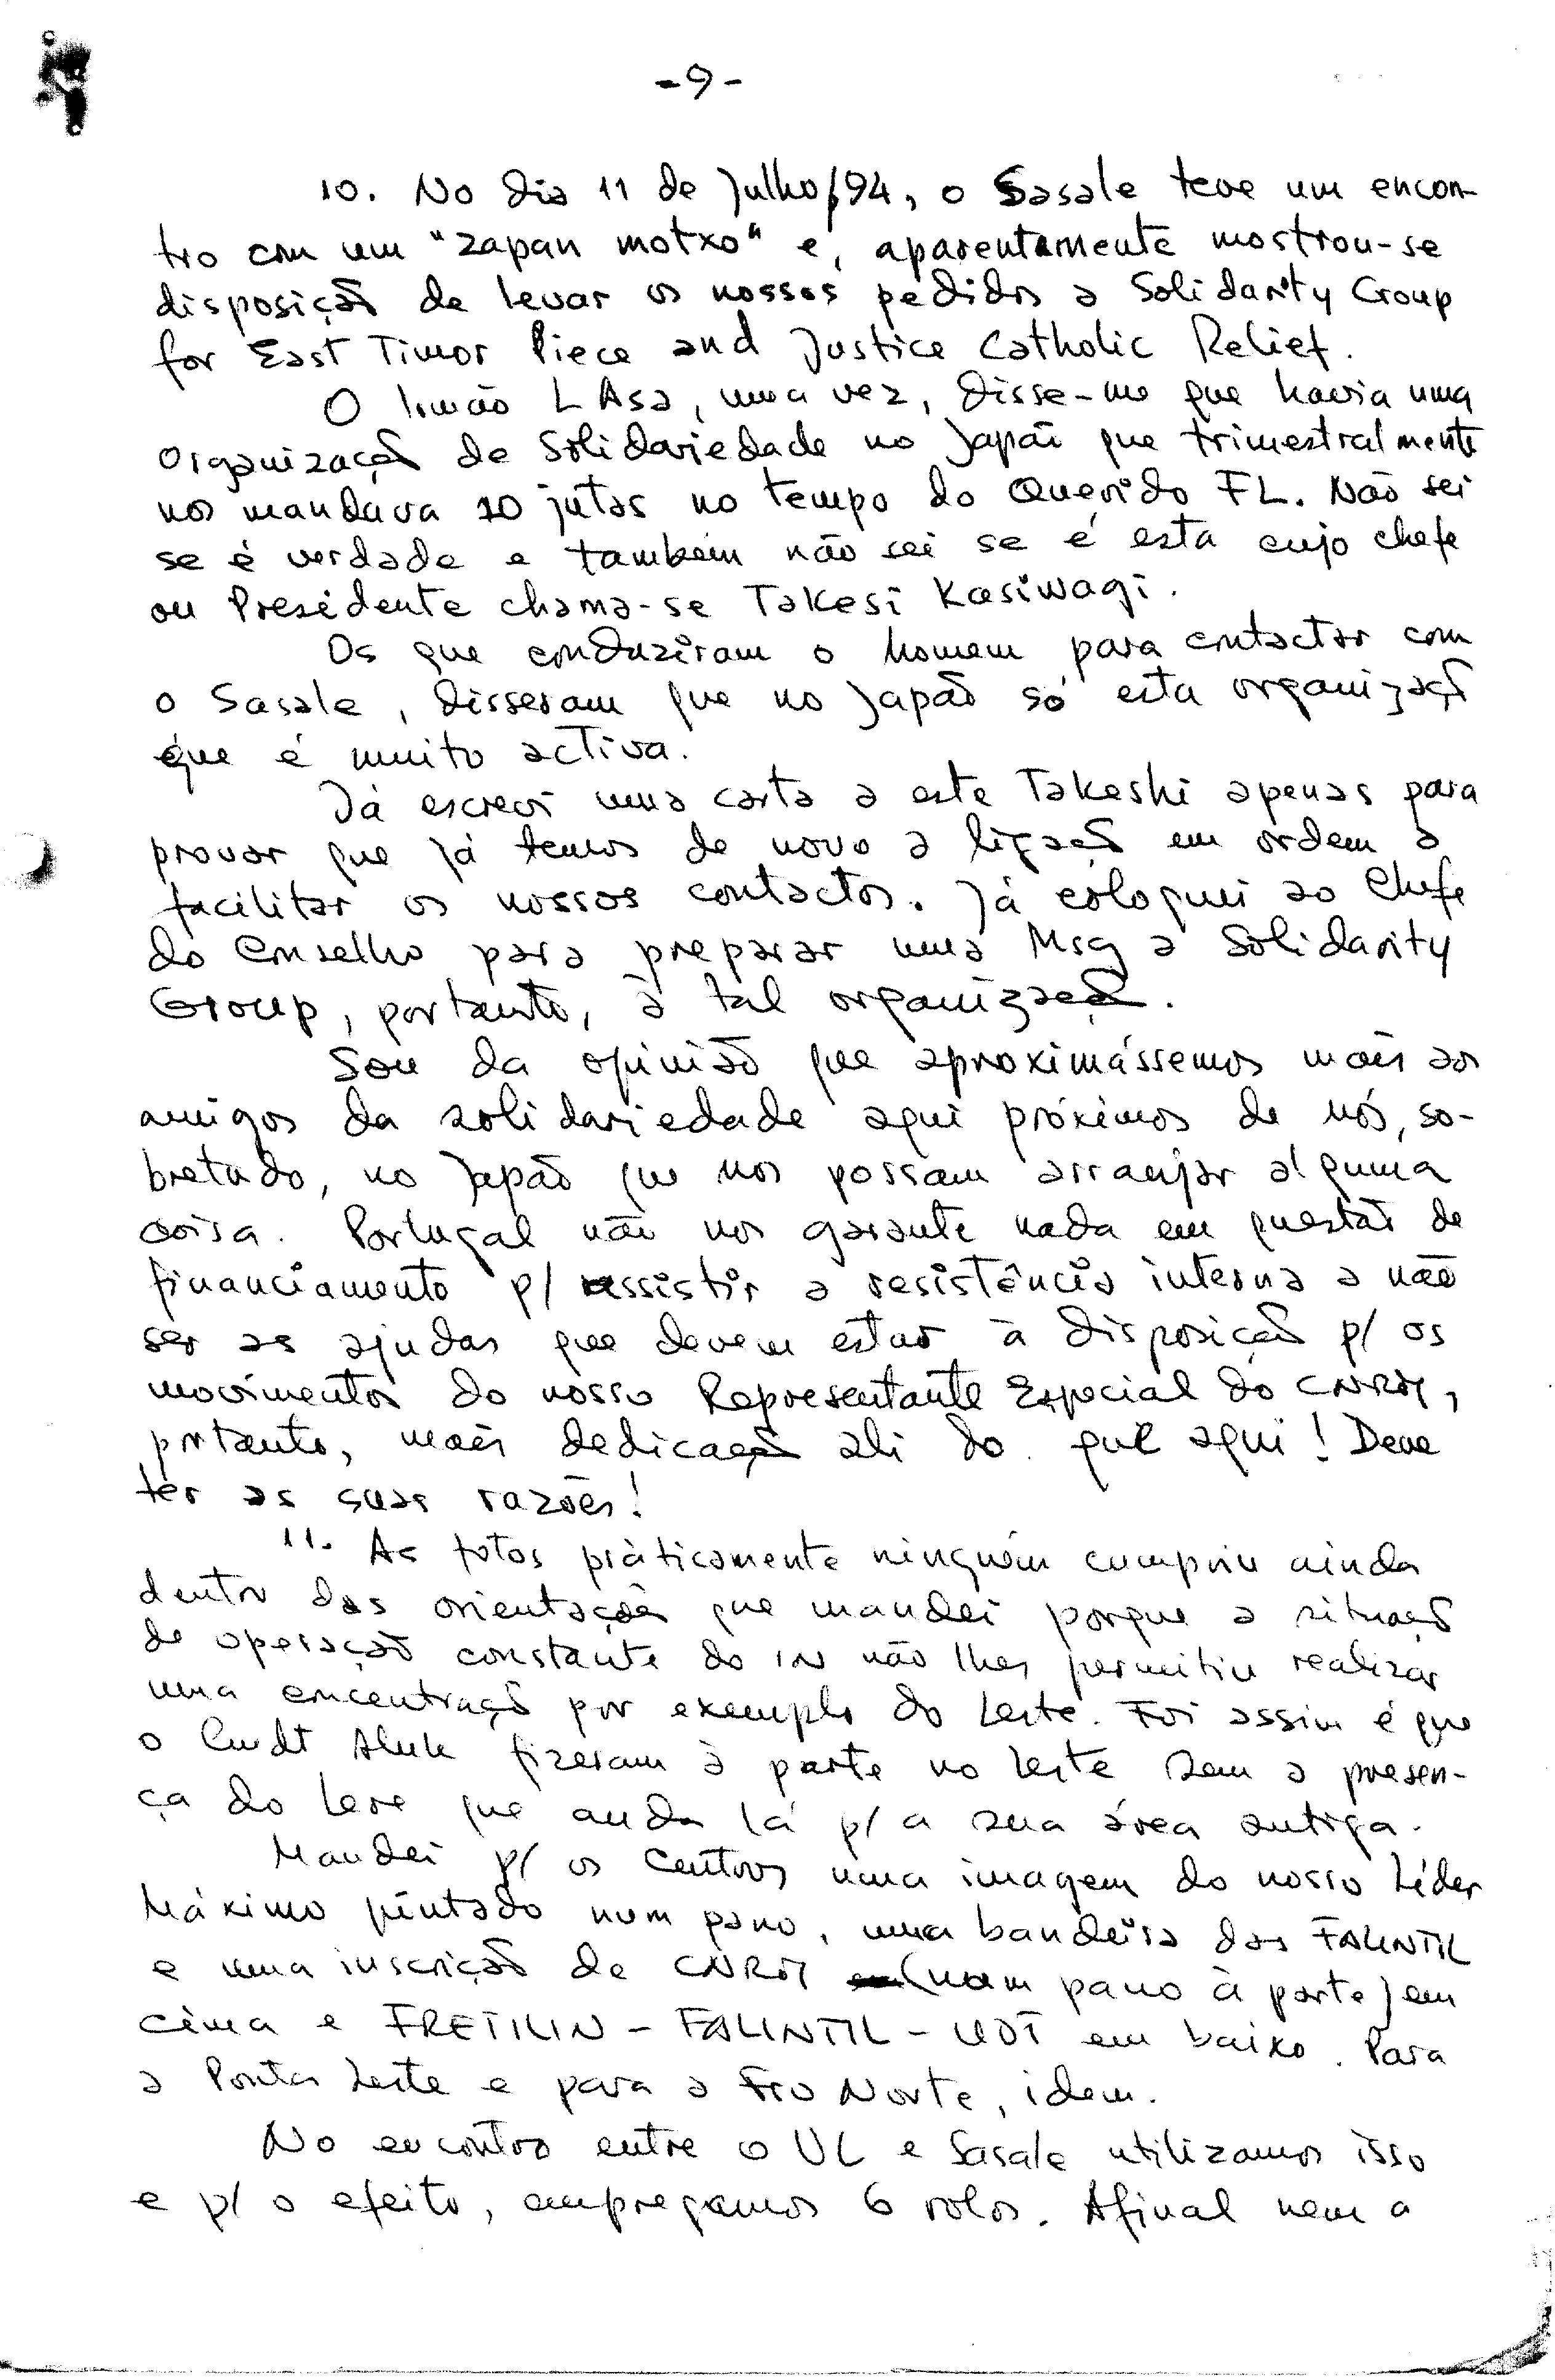 -9-
10. No dia 11 de Julho/94, o Sasale teve um encon-
tro com um "zapan motxo" e, aparentemente mostrou-se
disposição de levar os nossos pedidos a Solidarity Group
for East Timor Piece and Justice Catholic Relief.
O Irmão L Asa, uma vez, disse-me que havia uma
Organização de Solidariedade no Japão que trimestralmente
nos mandava 10 jutas no tempo do Querido FL. Não sei
se é verdade e também não sei se é esta cujo chefe
ou Presidente chama-se Takesi Kasiwagi.
Os que conduziram o homem para contactar com
o Sasale, disseram que no Japão só esta organização
é que é muito activa.
Já escrevi uma carta a este Takeshi apenas para
provar que já temos de novo a ligação em ordem a
facilitar os nossos contactos. Já coloquei ao Chefe
do Conselho para preparar uma Msg a Solidarity
Group, portanto, à tal organização.
Sou da opinião que aproximássemos mais aos
amigos da solidariedade aqui próximos de nós, so-
bretudo, no Japão que nos possam arranjar alguma
coisa. Portugal não nos garante nada em questão de
financiamento p/ assistir a resistência interna a não
ser as ajudas que devem estar à disposição p/ os
movimentos do nosso Representante Especial do CNRM,
portanto, mais dedicação ali do que aqui! Deve
ter as suas razões!
11. As fotos pràticamente ninguém cumpriu ainda
dentro das orientações que mandei porque a situação
de operação constante do IN não lhes permitiu realizar
uma concentração por exemplo do Leste. Foi assim é que
o Cmdt Aluk fizeram à parte no Leste sem a presen-
ça do Lere que anda lá p/ a sua área antiga.
Mandei p/ os Centros uma imagem do nosso Líder
Máximo pintado num pano, uma bandeira das FALINTIL
e uma inscrição de CNRM (num pano à parte) em
cima e FRETILIN - FALINTIL - UDT em baixo. Para
a Ponta Leste e para a Fro Norte, idem.
No encontro entre o UL e Sasale utilizamos isso
e p/ o efeito, empregamos 6 rolos. Afinal nem a